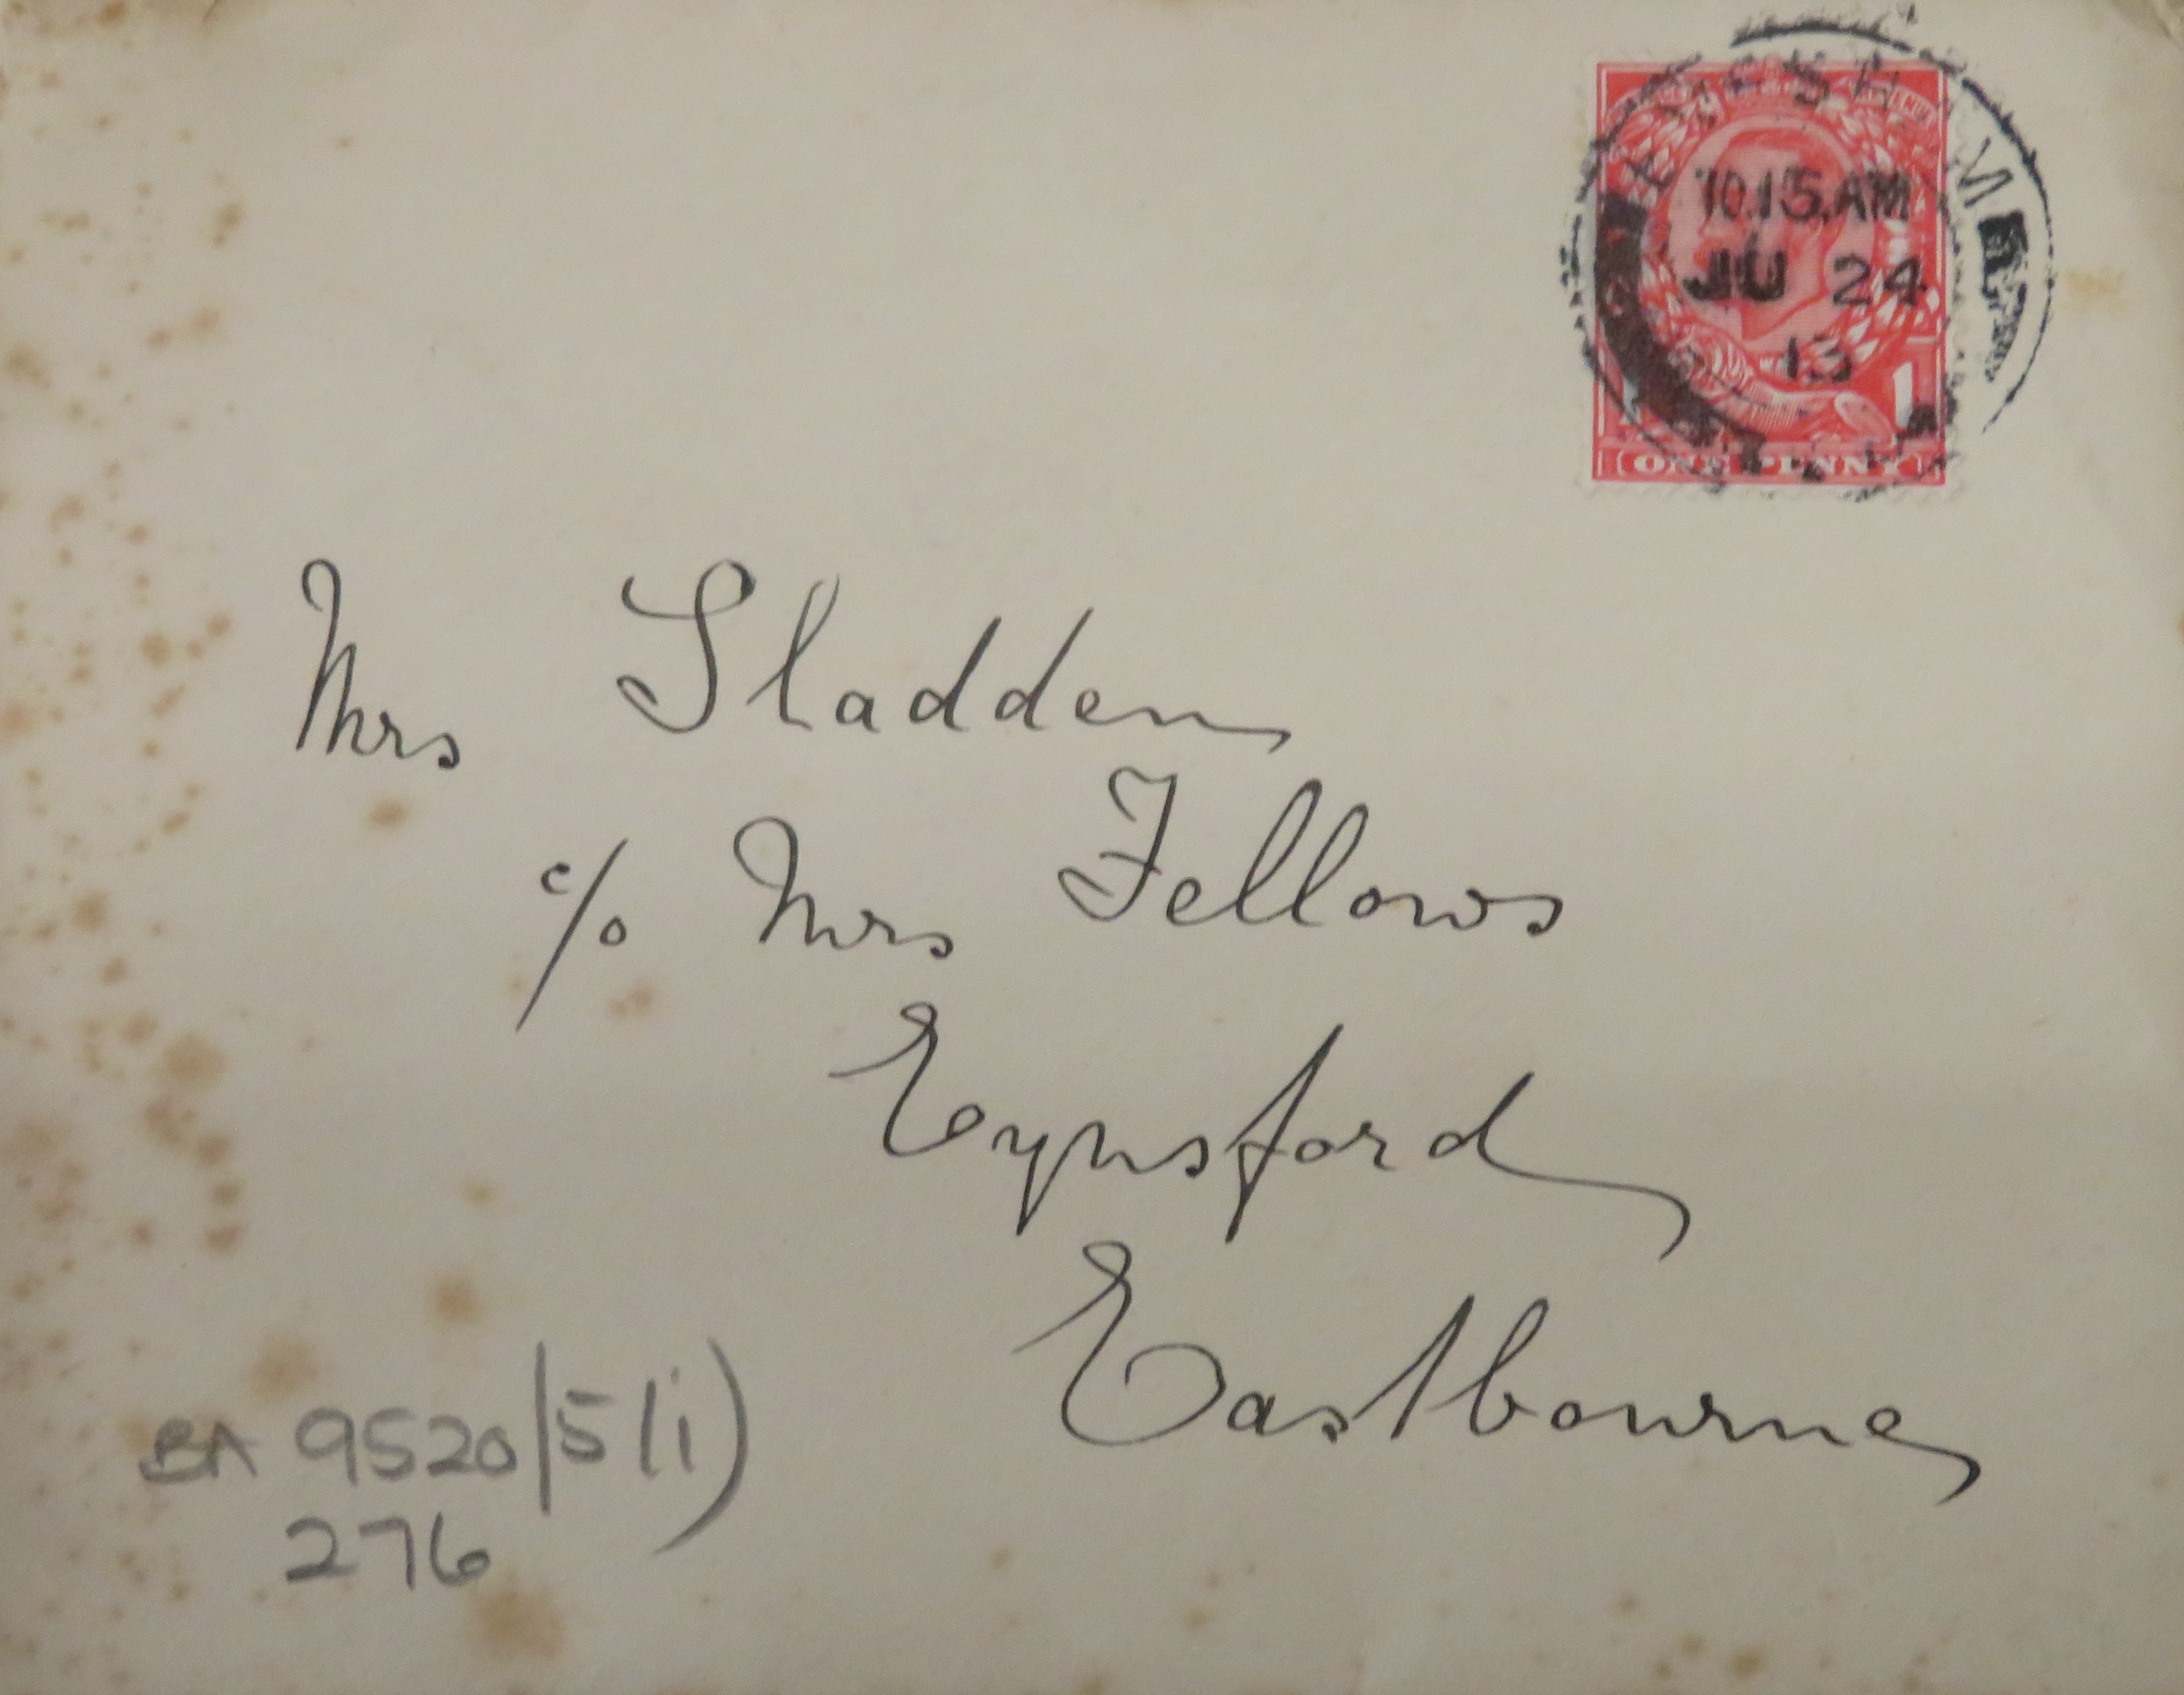 EVESHAM
10.15.AM
JU 24
13
1
ONE PENNY
Mrs Sladden
c/o Mrs Fellows
Eynsford
Eastbourne
BA 9520/5(i)
276